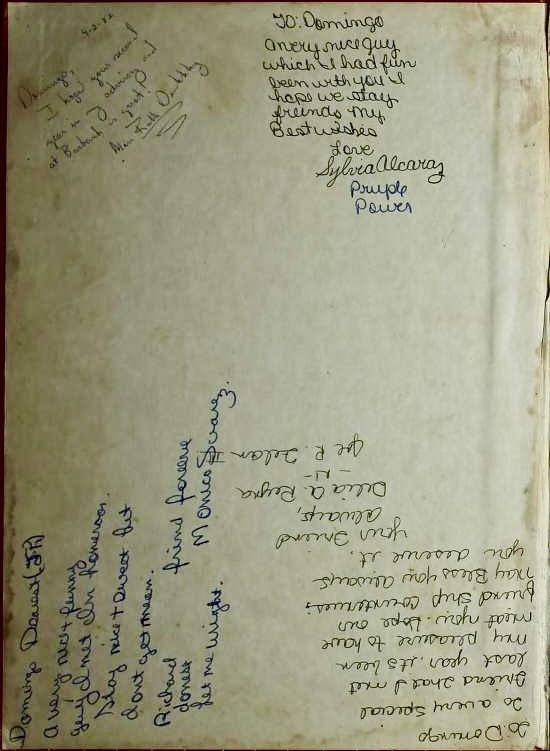 9-2-82
Domingo,
I hope your second
year in advising and
at Burbank is great!
Miss
TO: Domingo
a very nice guy
which I had fun
been with you I
hope we stay
freinds My
Best wishes
Love
Sylvia Alcaraz
Pruple
Power
Domingo
a very nice + funny
guy I met in homeroom.
Stay nice + sweet but
dont get mean.
Richard
donest
let me Wright.
frind forever
Monica Suarez.
To: Domingo
To a very Special
friend that I met
last year, it's been
my pleasure to have
meet you. hope our
friend ship countenues.
May Bless you always
you deserve it.
your friend
always,
Delia A. Reyna
-N-
Joe R. II